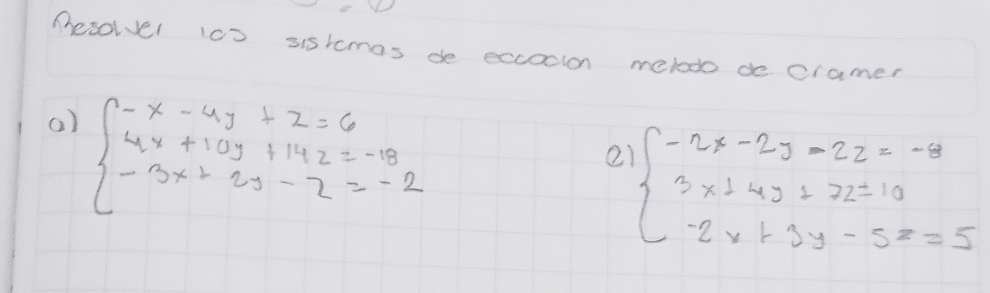 Resolver los sistemas de eccocion metodo de cramer
a) { -x - 4y + z = 6
4x + 10y + 14z = -18
-3x + 2y - z = -2
e) { -2x - 2y - 2z = -8
3x + 4y + 7z = 10
-2x + 3y - 5z = 5